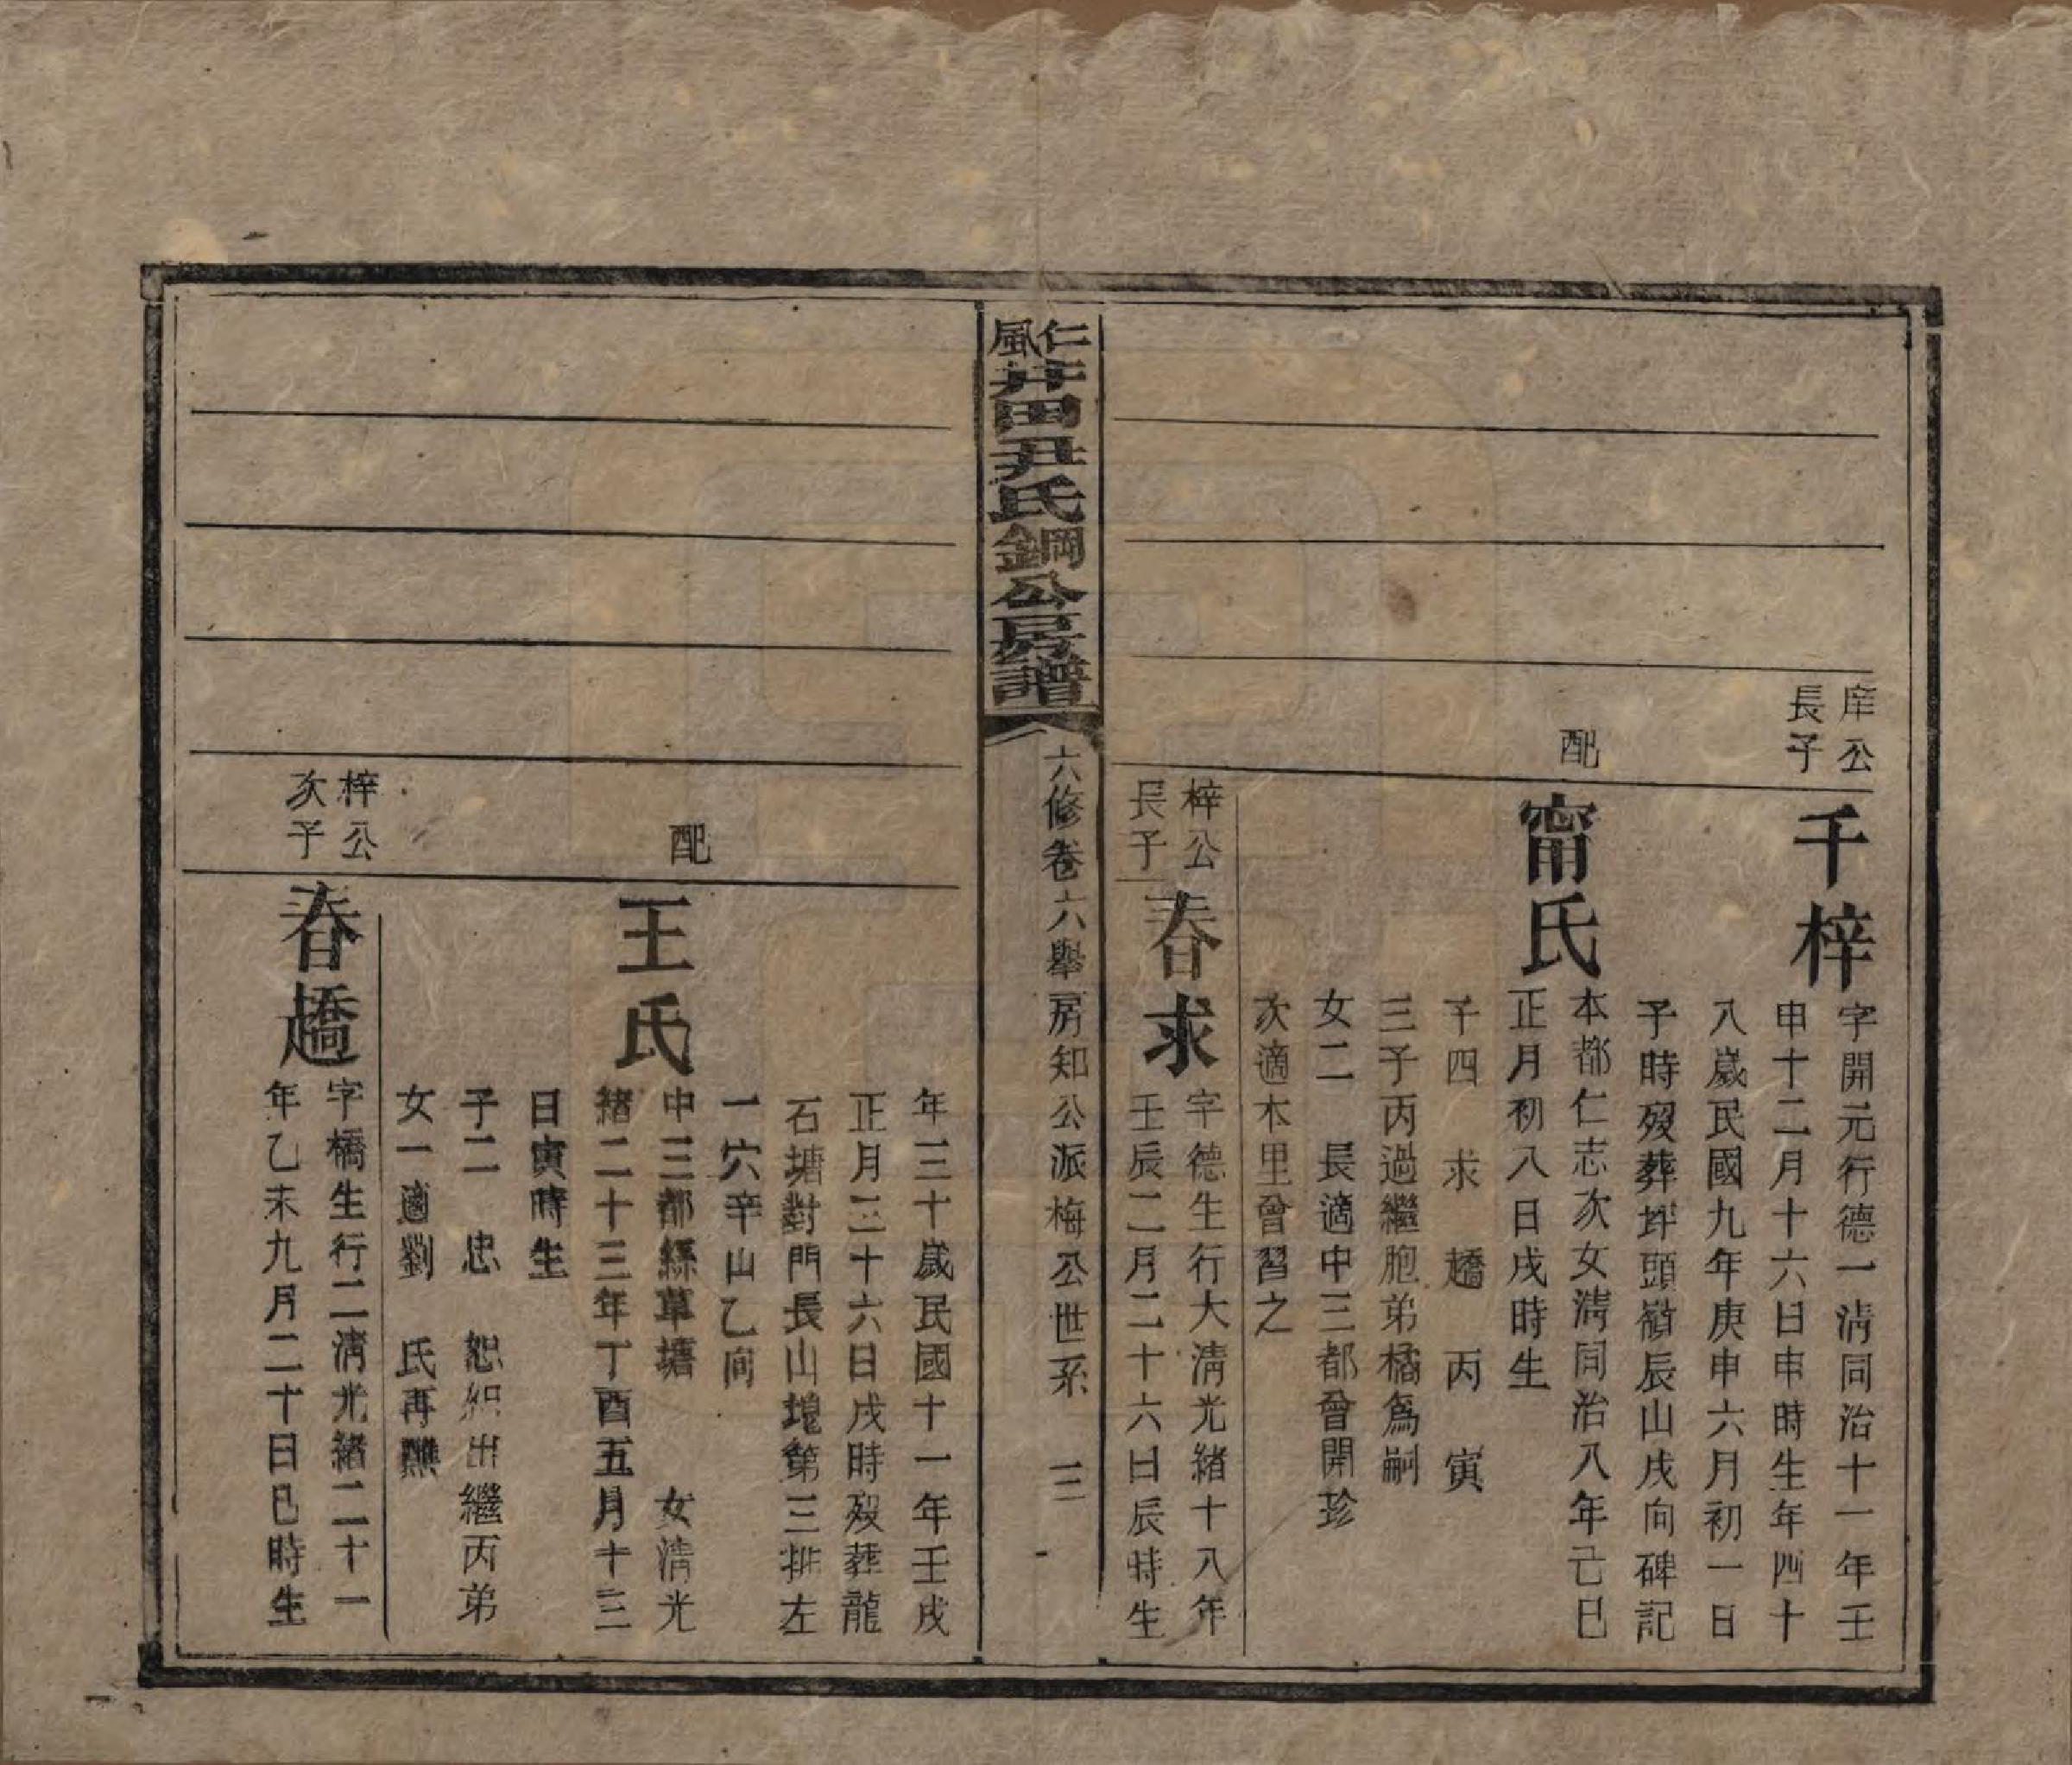 庠公
長子
千梓
字開元行德一清同治十一年壬
申十二月十六日申時生年四十
八歲民國九年庚申六月初一日
子時歿葬坪頭嶺辰山戌向碑記
配
甯氏
本都仁志次女清同治八年己巳
正月初八日戌時生
子四 求 趫 丙 寅
三子丙過繼胞弟橘爲嗣
女二 長適中三都曾開珍
次適本里曾習之
梓公
長子
春求
字德生行大清光緒十八年
壬辰二月二十六日辰時生
仁風井田尹氏鋼公房譜
六修卷六舉房知公派梅公世系 三
年三十歲民國十一年壬戌
正月三十六日戌時歿葬龍
石塘對門長山塊第三排左
一穴辛山乙向
配
王氏
中三都絲草塘 女清光
緒二十三年丁酉五月十三
日寅時生
子二 忠 恕 出繼丙弟
女一適劉 氏再醮
梓公
次子
春趫
字橋生行二清光緒二十一
年乙未九月二十日巳時生